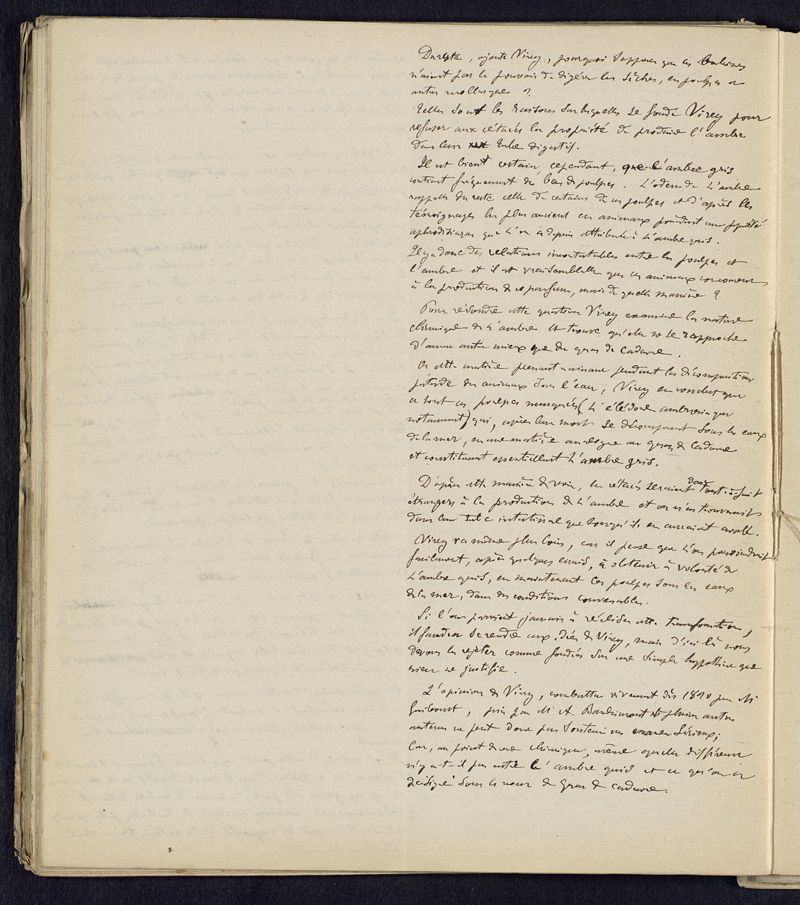 Du reste, ajoute Virey, pourquoi supposer que les baleines
n'aient pas le pouvoir de digérer les sèches, les poulpes ou
autres mollusques ?
Telles sont les raisons sur lesquelles se fonde Virey pour
refuser aux cétacés la propriété de produire l'ambre
dans leur tube digestif.
Il est bien certain, cependant, que l'ambre gris
contient fréquemment des becs de poulpes. L'odeur de l'ambre
rappelle du reste celle de certains de ces poulpes et d'après les
témoignages les plus anciens ces animaux possèdent une propriété
aphrodisiaque que l'on a depuis attribuée à l'ambre gris.
Il y a donc des relations incontestables entre les poulpes et
l'ambre et il est vraisemblable que ces animaux concourent
à la production de ce parfum, mais de quelle manière ?
Pour résoudre cette question Virey examine la nature
chimique de l'ambre et trouve qu'elle ne se rapproche
d'aucun autre mieux que du gras de cadavre.
Or cette matière prenant naissance pendant la décomposition
putride des animaux sous l'eau, Virey en conclut que
ce sont ces poulpes musqués (l'élédone ambrosiaque
notamment) qui, après leur mort se décomposent sous les eaux
de la mer, en une matière analogue au gras de cadavre
et constituent essentiellement l'ambre gris.
D'après cette manière de voir, les cétacés seraient donc tout-à-fait
étrangers à la production de l'ambre et on n'en trouverait
dans leur tube intestinal que lorsqu'ils en auraient avalé.
Virey va même plus loin, car il pense que l'on parviendrait
facilement, après quelques essais, à obtenir à volonté de
l'ambre gris, en maintenant les poulpes sous les eaux
de la mer, dans des conditions convenables.
Si l'on parvient jamais à réaliser cette transformation,
il faudra se rendre aux idées de Virey, mais d'ici là nous
devons les rejeter comme fondées sur une simple hypothèse que
rien ne justifie.
L'opinion de Virey, combattue vivement dès par M.
Guibourt, puis par M. A. Baudrimont et plusieurs autres
auteurs ne peut donc pas soutenir un examen sérieux;
Car, au point de vue chimique, même quelles différences
n'y a-t-il pas entre l'ambre gris et ce qu'on a
désigné sous le nom de gras de cadavre.